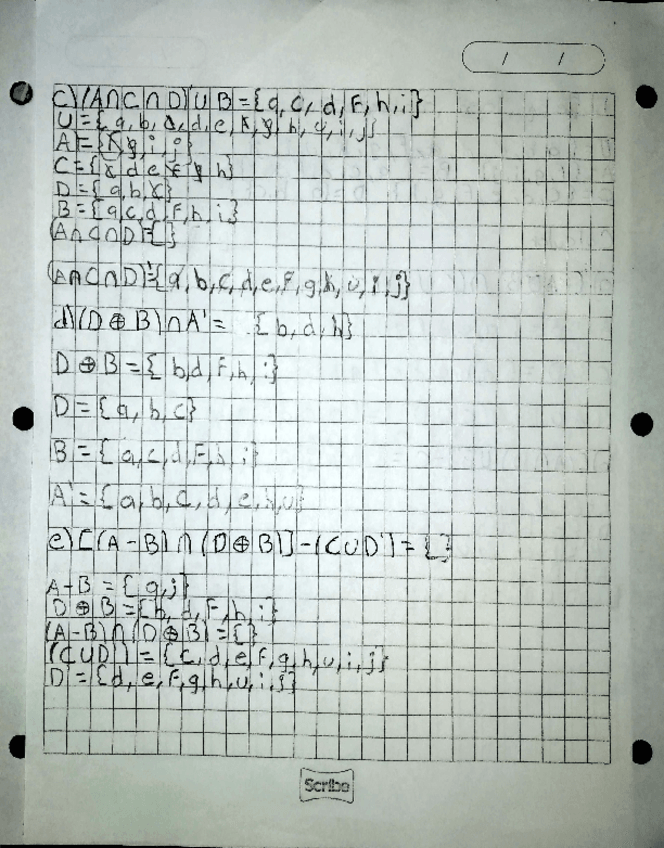 / /
c) (A∩C∩D)'∪B = {a, c, d, F, h, i}
U = {a, b, c, d, e, F, g, h, u, i, j}
A = {F, g, i, j}
C = {c d e F g h}
D = {a, b, c}
B = {a, c, d, F, h, i}
(A∩C∩D) = {}
(A∩C∩D)' = {a, b, c, d, e, F, g, h, u, i, j}
d) (D ⊕ B) ∩ A' = {b, d, h}
D ⊕ B = {b, d, F, h, i}
D = {a, b, c}
B = {a, c, d, F, h, i}
A' = {a, b, c, d, e, h, u}
e) [(A-B) ∩ (D⊕B)] - (C∪D') = {}
A-B = {g, j}
D ⊕ B = {b, d, F, h, i}
(A-B) ∩ (D ⊕ B) = {}
(C∪D') = {c, d, e, F, g, h, u, i, j}
D' = {d, e, F, g, h, u, i, j}
Scribe